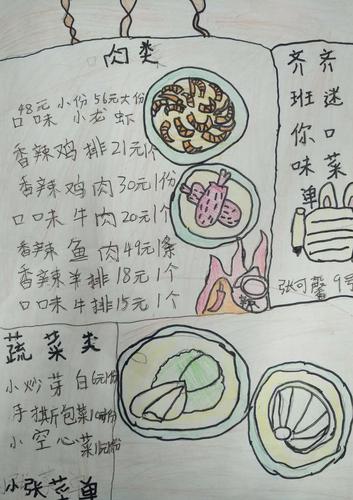 肉类
48元小份 56元大份
口味小龙虾
香辣鸡排21元1个
香辣鸡肉30元1份
口口味牛肉20元1个
香辣鱼肉49元1条
香辣羊排18元1个
口口味牛排15元1个
齐迷口味菜单
齐班你味
张可馨 9号
蔬菜类
小炒芽白
手撕包菜
小空心菜
小张菜单